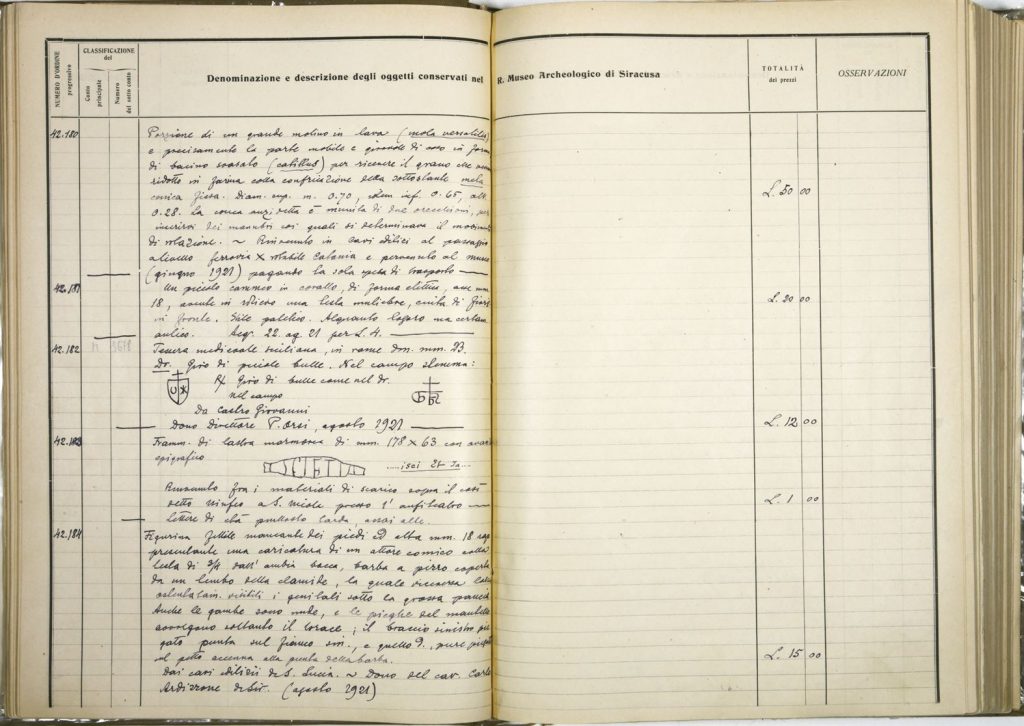 NUMERO D'ORDINE
progressivo
CLASSIFICAZIONE
del
Conto
principale
Numero
del sotto conto
Denominazione e descrizione degli oggetti conservati nel R. Museo Archeologico di Siracusa
TOTALITÀ
dei prezzi
OSSERVAZIONI
42.180
Porzione di un grande molino in lava (mola versatilis)
e precisamente la parte mobile e girevole di esso in forma
di bacino svasato (catillus) per ricevere il grano che
ridotto in farina colla confricazione della sottostante meta
conica fissa. Diam. sup. m. 0.70, idem inf. 0.65, alt.
0.28. La conca anzidetta è munita di due orecchioni, per
inserirvi dei manubri coi quali si determinava il movimento
di rotazione. ~ Rinvenuto in cavi edilizi al passaggio
a livello ferrovia × rotabile Catania e pervenuto al museo
(giugno 1921) pagando la sola spesa di trasporto
L. 50 00
42.181
Un piccolo cammeo in corallo, di forma elittica, mm
18, avente in rilievo una testa muliebre, cinta di
in fronte. Stile patetico. Alquanto logoro ma certam.
antico. Acq. 22 ag. 21 per L. 4.
L. 20 00
42.182
Tessera medioevale siciliana, in rame dm. mm. 23.
Dr. Giro di piccole bulle. Nel campo stemma:
R Giro di bulle come nel dr.
nel campo
Da Castro Giovanni
Dono Direttore P. Orsi, agosto 1921
L. 12 00
42.183
Framm. di lastra marmorea di mm. 178 × 63 con avanzo
epigrafico
SCIETIA
.....isci et ia...
Rinvenuto fra i materiali di scarico sopra il così
detto Ninfeo a S. Nicola presso l'anfiteatro
Lettere di età piuttosto tarda, assai alte.
L. 1 00
42.184
Figurina fittile mancante dei piedi ed alta mm. 18 rap
presentante una caricatura di un attore comico colla
testa di 3/4 dall'ampia bocca, barba a pizzo coperta
da un lembo della clamide, la quale viceversa lascia
visibili i genitali sotto la grossa pancia
Anche le gambe sono nude, e le pieghe del mantello
avvolgono soltanto il torace; il braccio sinistro pie
gato punta sul fianco sin., e quello d., pure piegato
sul petto accenna alla punta della barba.
Dai cavi edilizii di S. Lucia. ~ Dono del cav. Carlo
Ardizzone di Sir. (agosto 1921)
L. 15 00